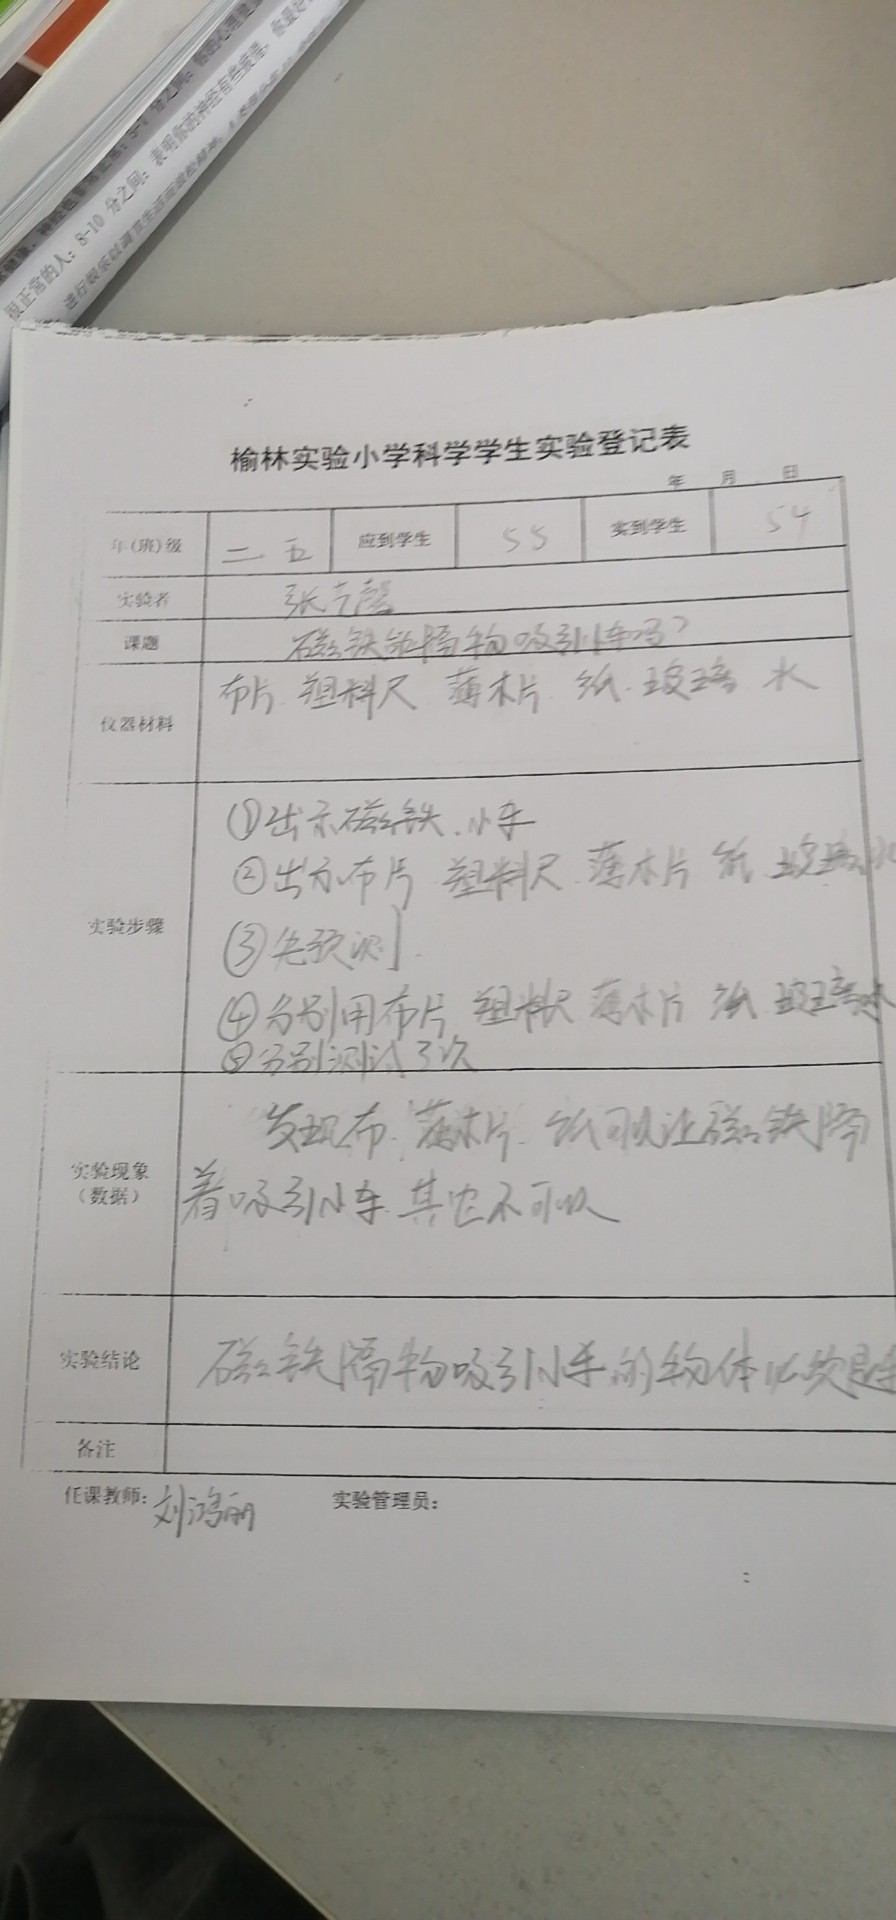 很正常的人；8-10 分之间：表明你的神经有些疲惫，你最好
榆林实验小学科学学生实验登记表
年 月 日
年(班)级 二.五 应到学生 55 实到学生 54
实验者 张
课题 磁铁能隔物吸引小车吗?
仪器材料 布片 塑料尺 薄木片 纸 玻璃 水
①出示磁铁、小车
②出示布片 塑料尺 薄木片 纸 玻璃 水
实验步骤
③先预测
④分别用布片 塑料尺 薄木片 纸 玻璃 水
⑤分别测试3次
发现布、薄木片、纸可以让磁铁隔
实验现象
(数据)
着吸引小车.其它不可以
实验结论 磁铁隔物吸引小车的物体必须是
备注
任课教师: 刘鸿丽 实验管理员: